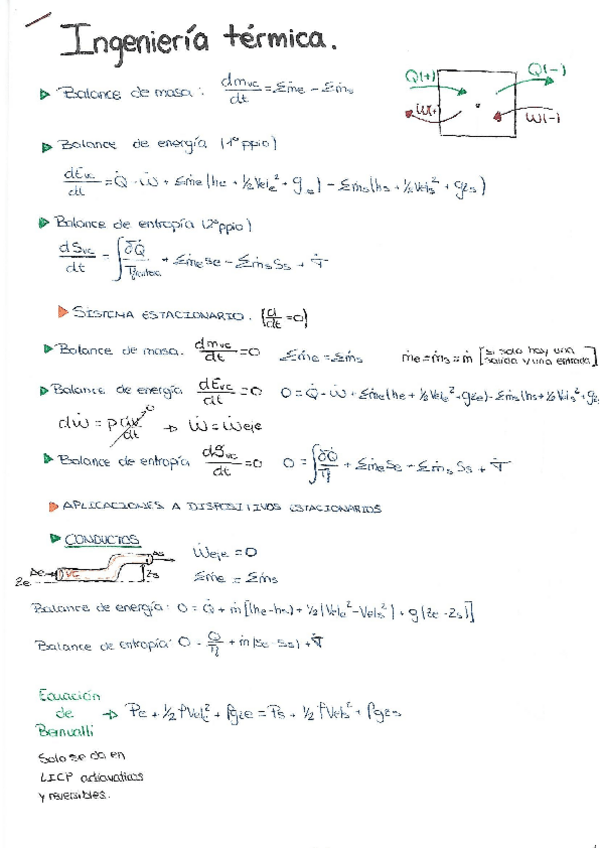 Ingeniería térmica.
Balance de masa: dmvc/dt = Σṁe - Σṁs
Q(+) Q(-)
W(+) W(-)
Balance de energía (1º ppio)
dEvc/dt = Q̇ - Ẇ + Σṁe(he + 1/2 Vele² + gze) - Σṁs(hs + 1/2 Vels² + gzs)
Balance de entropía (2º ppio)
dSvc/dt = ∫ δQ̇/Tfrontera + Σṁe se - Σṁs Ss + σ̇
SISTEMA ESTACIONARIO. (d/dt = 0)
Balance de masa. dmvc/dt = 0 Σṁe = Σṁs ṁe = ṁs = ṁ [si solo hay una salida y una entrada]
Balance de energía dEvc/dt = 0 0 = Q̇ - Ẇ + Σṁe(he + 1/2 Vele² + gze) - Σṁs(hs + 1/2 Vels² + gzs
dẆ = p dv/dt → Ẇ = Ẇeje
Balance de entropía dSvc/dt = 0 0 = ∫ δQ̇/Tf + Σṁe Se - Σṁs Ss + σ̇
APLICACIONES A DISPOSITIVOS ESTACIONARIOS
CONDUCTOS
Ẇeje = 0
Ae VC As
ze zs
Σṁe = Σṁs
Balance de energía: 0 = Q̇ + ṁ[(he-hs) + 1/2(Vele² - Vels²) + g(ze - zs)]
Balance de entropía: 0 = Q̇/Tf + ṁ(se - ss) + σ̇
Ecuación
de → Pe + 1/2 ρVele² + ρgze = Ps + 1/2 ρVels² + ρgzs
Bernuolli
Solo se da en
LICP adiavaticos
y reversibles.